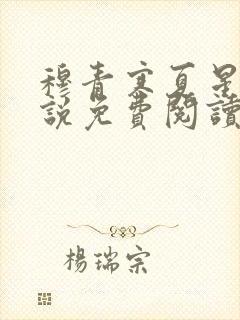 穆青寒夏星
說免費閱讀
楊瑞宗